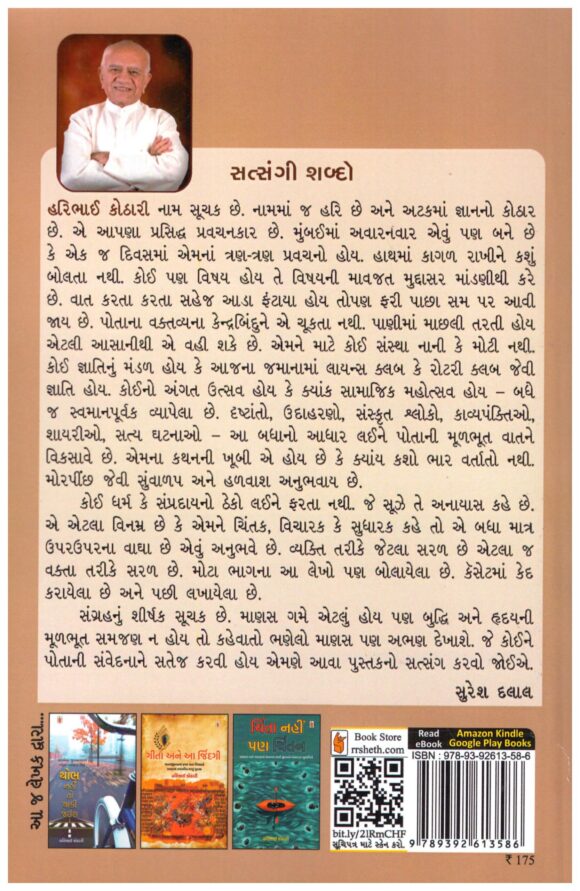 સત્સંગી શબ્દો
હરિભાઈ કોઠારી નામ સૂચક છે. નામમાં જ હરિ છે અને અટકમાં જ્ઞાનનો કોઠાર
છે. એ આપણા પ્રસિદ્ધ પ્રવચનકાર છે. મુંબઈમાં અવારનવાર એવું પણ બને છે
કે એક જ દિવસમાં એમનાં ત્રણ-ત્રણ પ્રવચનો હોય. હાથમાં કાગળ રાખીને કશું
બોલતા નથી. કોઈ પણ વિષય હોય તે વિષયની માવજત મુદ્દાસર માંડણીથી કરે
છે. વાત કરતા કરતા સહેજ આડા ફંટાયા હોય તોપણ ફરી પાછા સમ પર આવી
જાય છે. પોતાના વક્તવ્યના કેન્દ્રબિંદુને એ ચૂકતા નથી. પાણીમાં માછલી તરતી હોય
એટલી આસાનીથી એ વહી શકે છે. એમને માટે કોઈ સંસ્થા નાની કે મોટી નથી.
કોઈ જ્ઞાતિનું મંડળ હોય કે આજના જમાનામાં લાયન્સ ક્લબ કે રોટરી ક્લબ જેવી
જ્ઞાતિ હોય. કોઈનો અંગત ઉત્સવ હોય કે ક્યાંક સામાજિક મહોત્સવ હોય – બધે
જ સ્વમાનપૂર્વક વ્યાપેલા છે. દૃષ્ટાંતો, ઉદાહરણો, સંસ્કૃત શ્લોકો, કાવ્યપંક્તિઓ,
શાયરીઓ, સત્ય ઘટનાઓ – આ બધાનો આધાર લઈને પોતાની મૂળભૂત વાતને
વિકસાવે છે. એમના કથનની ખૂબી એ હોય છે કે ક્યાંય કશો ભાર વર્તાતો નથી.
મોરપીંછ જેવી સુંવાળપ અને હળવાશ અનુભવાય છે.
કોઈ ધર્મ કે સંપ્રદાયનો ઠેકો લઈને ફરતા નથી. જે સૂઝે તે અનાયાસ કહે છે.
એ એટલા વિનમ્ર છે કે એમને ચિંતક, વિચારક કે સુધારક કહે તો એ બધા માત્ર
ઉપરઉપરના વાઘા છે એવું અનુભવે છે. વ્યક્તિ તરીકે જેટલા સરળ છે એટલા જ
વક્તા તરીકે સરળ છે. મોટા ભાગના આ લેખો પણ બોલાયેલા છે. કૅસેટમાં કેદ
કરાયેલા છે અને પછી લખાયેલા છે.
સંગ્રહનું શીર્ષક સૂચક છે. માણસ ગમે એટલું હોય પણ બુદ્ધિ અને હૃદયની
મૂળભૂત સમજણ ન હોય તો કહેવાતો ભણેલો માણસ પણ અભણ દેખાશે. જે કોઈને
પોતાની સંવેદનાને સતેજ કરવી હોય એમણે આવા પુસ્તકનો સત્સંગ કરવો જોઈએ.
સુરેશ દલાલ
આ જ લેખક દ્વારા...
થોભ
નહીં
તો
થાકી
જઈશ
ગીતા અને આ જિંદગી
ચિંતા નહીં
પણ ચિંતન
Book Store
rrsheth.com
bit.ly/2lRmCHF
સૂચિપત્ર માટે સ્કેન કરો.
Read
eBook
Amazon Kindle
Google Play Books
ISBN : 978-93-92613-58-6
9 789392 613586
₹ 175